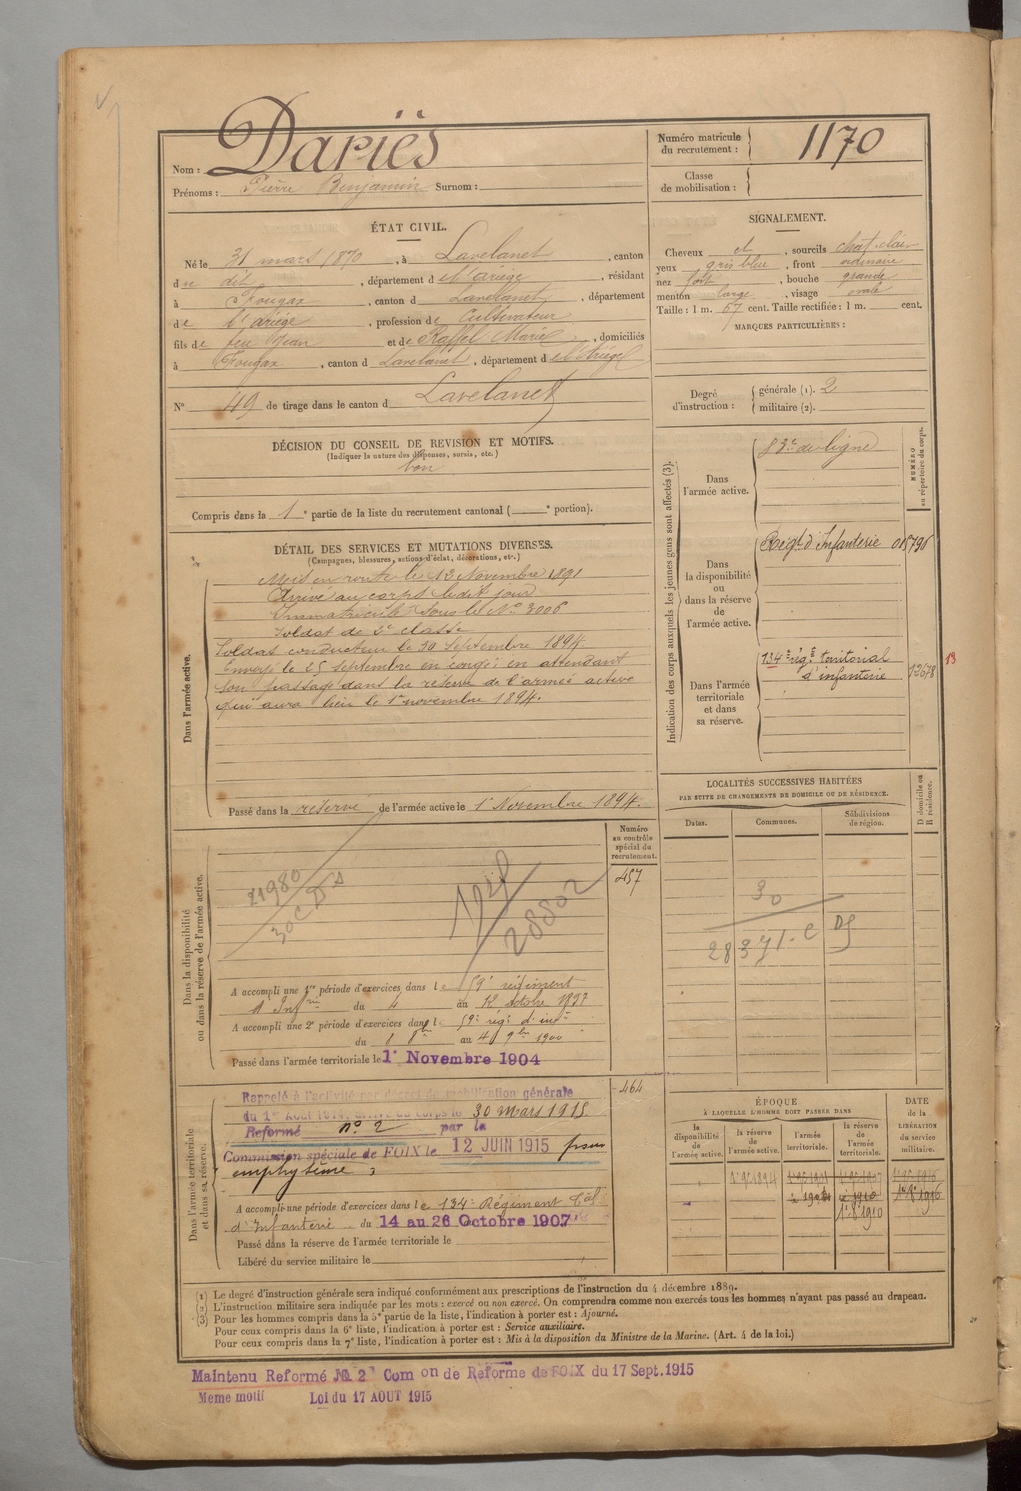 Nom : Dariès
Prénoms : Pierre Benjamin Surnom :
Numéro matricule du recrutement : 1170
Classe de mobilisation :
ÉTAT CIVIL.
Né le 31 mars 1870, à Lavelanet, canton
du dit, département de l'Ariège, résidant
à Fougax, canton d Lavelanet, département
de l'Ariège, profession de Cultivateur
fils de feu Jean et de Raffel Marie, domiciliés
à Fougax, canton d Lavelanet, département de l'Ariège
N° 49 de tirage dans le canton d Lavelanet
SIGNALEMENT.
Cheveux et, sourcils chat. clair
yeux gris bleu, front ordinaire
nez fort, bouche grande
menton large, visage ovale
Taille : 1 m. 67 cent. Taille rectifiée : 1 m. cent.
MARQUES PARTICULIÈRES :
Degré d'instruction : générale (1). 2
militaire (2).
DÉCISION DU CONSEIL DE REVISION ET MOTIFS.
(Indiquer la nature des dispenses, sursis, etc.)
bon
Compris dans la 1e partie de la liste du recrutement cantonal ( e portion).
DÉTAIL DES SERVICES ET MUTATIONS DIVERSES.
(Campagnes, blessures, actions d'éclat, décorations, etc.)
Dans l'armée active.
Mis en route le 13 Novembre 1891
Arrivé au corps le dit jour
Immatriculé sous le N° 3006
Soldat de 2e classe
Soldat conducteur le 30 Septembre 1894
Envoyé le 25 septembre en congé en attendant
son passage dans la réserve de l'armée active
qui aura lieu le 1er novembre 1894.
Passé dans la réserve de l'armée active le 1er Novembre 1894.
Indication des corps auxquels les jeunes gens sont affectés (3).
NUMÉRO au répertoire du corps.
Dans l'armée active.
83e de ligne
Dans la disponibilité ou dans la réserve de l'armée active.
Régt d'Infanterie 015796
Dans l'armée territoriale et dans sa réserve.
134e régt territorial
d'infanterie 12678 13
LOCALITÉS SUCCESSIVES HABITÉES
PAR SUITE DE CHANGEMENTS DE DOMICILE OU DE RÉSIDENCE.
D domicile ou R résidence.
Dates. Communes. Subdivisions de région.
30
Numéro au contrôle spécial du recrutement.
457
Dans la disponibilité ou dans la réserve de l'armée active.
21980
28802
A accompli une 1re période d'exercices dans le 59e régiment
d'Infrie du 4 au
A accompli une 2e période d'exercices dans le 59e rég. d'infie
du au 4 9bre 1900
Passé dans l'armée territoriale le 1er Novembre 1904
464
Dans l'armée territoriale et dans sa réserve.
Rappelé à l'activité par décret de mobilisation générale
du 1er Août 1914, arrivé au corps le 30 mars 1915
Reformé n° 2 par la
Commission spéciale de FOIX le 12 JUIN 1915 pour
emphysème
A accompli une période d'exercices dans le 134e Régiment Tal
d'Infanterie du 14 au 26 Octobre 1907
Passé dans la réserve de l'armée territoriale le
Libéré du service militaire le
ÉPOQUE
À LAQUELLE L'HOMME DOIT PASSER DANS
DATE de la LIBÉRATION du service militaire.
la disponibilité de l'armée active. la réserve de l'armée active. l'armée territoriale. la réserve de l'armée territoriale.
(1) Le degré d'instruction générale sera indiqué conformément aux prescriptions de l'instruction du 4 décembre 1889.
(2) L'instruction militaire sera indiquée par les mots : exercé ou non exercé. On comprendra comme non exercés tous les hommes n'ayant pas passé au drapeau.
(3) Pour les hommes compris dans la 5e partie de la liste, l'indication à porter est : Ajourné.
Pour ceux compris dans la 6e liste, l'indication à porter est : Service auxiliaire.
Pour ceux compris dans la 7e liste, l'indication à porter est : Mis à la disposition du Ministre de la Marine. (Art. 4 de la loi.)
Maintenu Reformé № 2 Com on de Reforme de FOIX du 17 Sept. 1915
Meme motif Loi du 17 AOUT 1915